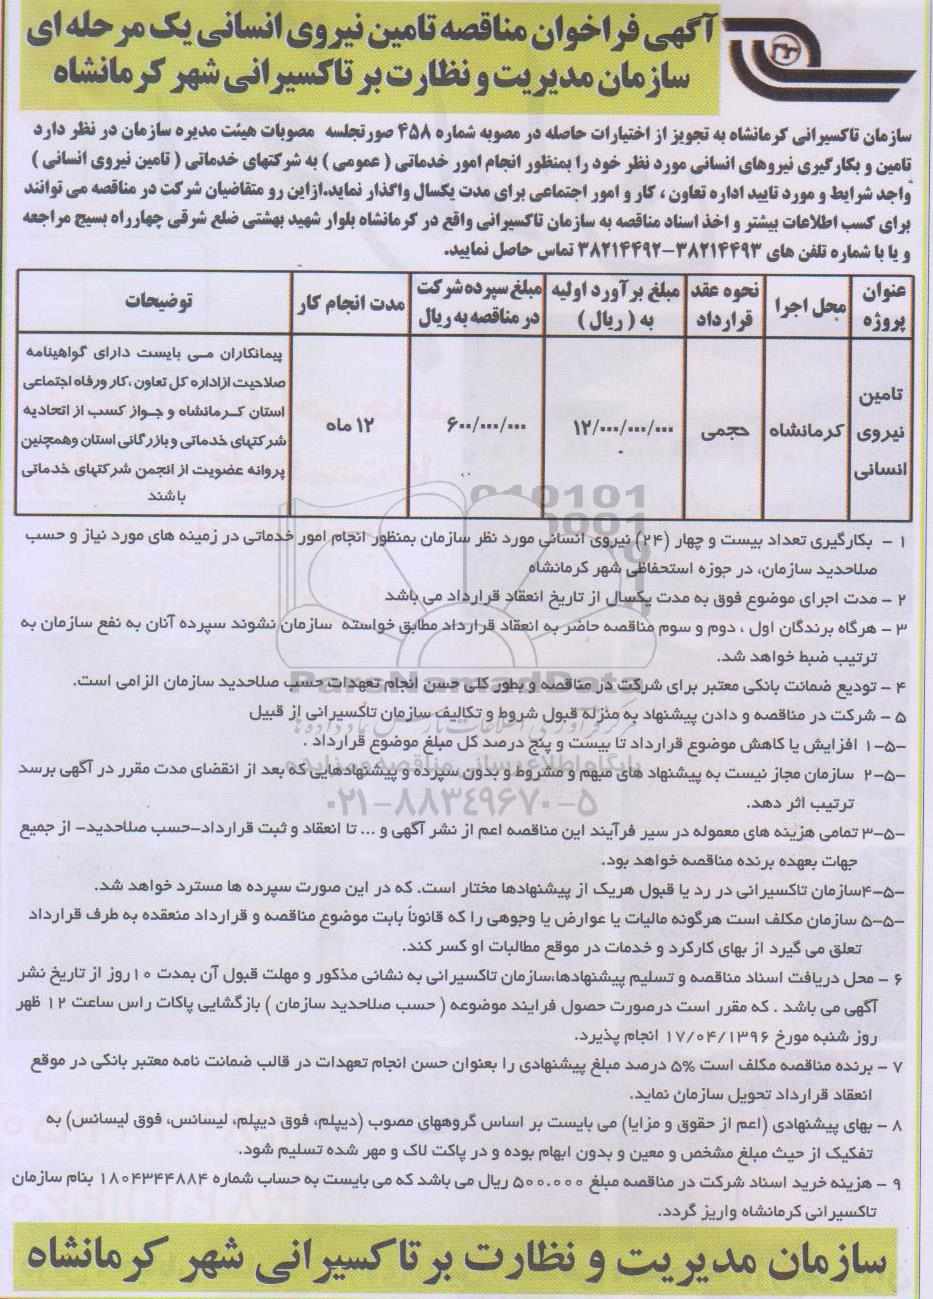 آگهی فراخوان مناقصه تامین نیروی انسانی یک مرحله ای
سازمان مدیریت و نظارت بر تاکسیرانی شهر کرمانشاه
سازمان تاکسیرانی کرمانشاه به تجویز از اختیارات حاصله در مصوبه شماره ۴۵۸ صورتجلسه مصوبات هیئت مدیره سازمان در نظر دارد
تامین و بکارگیری نیروهای انسانی مورد نظر خود را بمنظور انجام امور خدماتی ( عمومی ) به شرکتهای خدماتی ( تامین نیروی انسانی )
واجد شرایط و مورد تایید اداره تعاون ، کار و امور اجتماعی برای مدت یکسال واگذار نماید.ازاین رو متقاضیان شرکت در مناقصه می توانند
برای کسب اطلاعات بیشتر و اخذ اسناد مناقصه به سازمان تاکسیرانی واقع در کرمانشاه بلوار شهید بهشتی ضلع شرقی چهارراه بسیج مراجعه
و یا با شماره تلفن های ۳۸۲۱۴۴۹۳-۳۸۲۱۴۴۹۲ تماس حاصل نمایید.
عنوان پروژه
محل اجرا
نحوه عقد قرارداد
مبلغ برآورد اولیه به ( ریال )
مبلغ سپرده شرکت در مناقصه به ریال
مدت انجام کار
توضیحات
تامین نیروی انسانی
کرمانشاه
حجمی
۱۲/۰۰۰/۰۰۰/۰۰۰
۶۰۰/۰۰۰/۰۰۰
۱۲ ماه
پیمانکاران می بایست دارای گواهینامه
صلاحیت ازاداره کل تعاون ،کار ورفاه اجتماعی
استان کرمانشاه و جواز کسب از اتحادیه
شرکتهای خدماتی و بازرگانی استان وهمچنین
پروانه عضویت از انجمن شرکتهای خدماتی
باشند
۱ - بکارگیری تعداد بیست و چهار (۲۴) نیروی انسانی مورد نظر سازمان بمنظور انجام امور خدماتی در زمینه های مورد نیاز و حسب
صلاحدید سازمان، در حوزه استحفاظی شهر کرمانشاه
۲ - مدت اجرای موضوع فوق به مدت یکسال از تاریخ انعقاد قرارداد می باشد
۳ - هرگاه برندگان اول ، دوم و سوم مناقصه حاضر به انعقاد قرارداد مطابق خواسته سازمان نشوند سپرده آنان به نفع سازمان به
ترتیب ضبط خواهد شد.
۴ - تودیع ضمانت بانکی معتبر برای شرکت در مناقصه و بطور کلی حسن انجام تعهدات حسب صلاحدید سازمان الزامی است.
۵ - شرکت در مناقصه و دادن پیشنهاد به منزله قبول شروط و تکالیف سازمان تاکسیرانی از قبیل
-۵-۱ افزایش یا کاهش موضوع قرارداد تا بیست و پنج درصد کل مبلغ موضوع قرارداد .
-۵-۲ سازمان مجاز نیست به پیشنهاد های مبهم و مشروط و بدون سپرده و پیشنهادهایی که بعد از انقضای مدت مقرر در آگهی برسد
ترتیب اثر دهد.
-۵-۳ تمامی هزینه های معموله در سیر فرآیند این مناقصه اعم از نشر آگهی و ... تا انعقاد و ثبت قرارداد-حسب صلاحدید- از جمیع
جهات بعهده برنده مناقصه خواهد بود.
-۵-۴سازمان تاکسیرانی در رد یا قبول هریک از پیشنهادها مختار است. که در این صورت سپرده ها مسترد خواهد شد.
-۵-۵ سازمان مکلف است هرگونه مالیات یا عوارض یا وجوهی را که قانوناً بابت موضوع مناقصه و قرارداد منعقده به طرف قرارداد
تعلق می گیرد از بهای کارکرد و خدمات در موقع مطالبات او کسر کند.
۶ - محل دریافت اسناد مناقصه و تسلیم پیشنهادها،سازمان تاکسیرانی به نشانی مذکور و مهلت قبول آن بمدت ۱۰روز از تاریخ نشر
آگهی می باشد . که مقرر است درصورت حصول فرایند موضوعه ( حسب صلاحدید سازمان ) بازگشایی پاکات راس ساعت ۱۲ ظهر
روز شنبه مورخ ۱۷/۰۴/۱۳۹۶ انجام پذیرد.
۷ - برنده مناقصه مکلف است ۵% درصد مبلغ پیشنهادی را بعنوان حسن انجام تعهدات در قالب ضمانت نامه معتبر بانکی در موقع
انعقاد قرارداد تحویل سازمان نماید.
۸ - بهای پیشنهادی (اعم از حقوق و مزایا) می بایست بر اساس گروههای مصوب (دیپلم، فوق دیپلم، لیسانس، فوق لیسانس) به
تفکیک از حیث مبلغ مشخص و معین و بدون ابهام بوده و در پاکت لاک و مهر شده تسلیم شود.
۹ - هزینه خرید اسناد شرکت در مناقصه مبلغ ۵۰۰.۰۰۰ ریال می باشد که می بایست به حساب شماره ۱۸۰۴۳۴۴۸۸۴ بنام سازمان
تاکسیرانی کرمانشاه واریز گردد.
سازمان مدیریت و نظارت بر تاکسیرانی شهر کرمانشاه
ParsNamadData
پایگاه اطلاع رسانی مناقصه و مزایده
۰۲۱-۸۸۳۴۹۶۷۰-۵